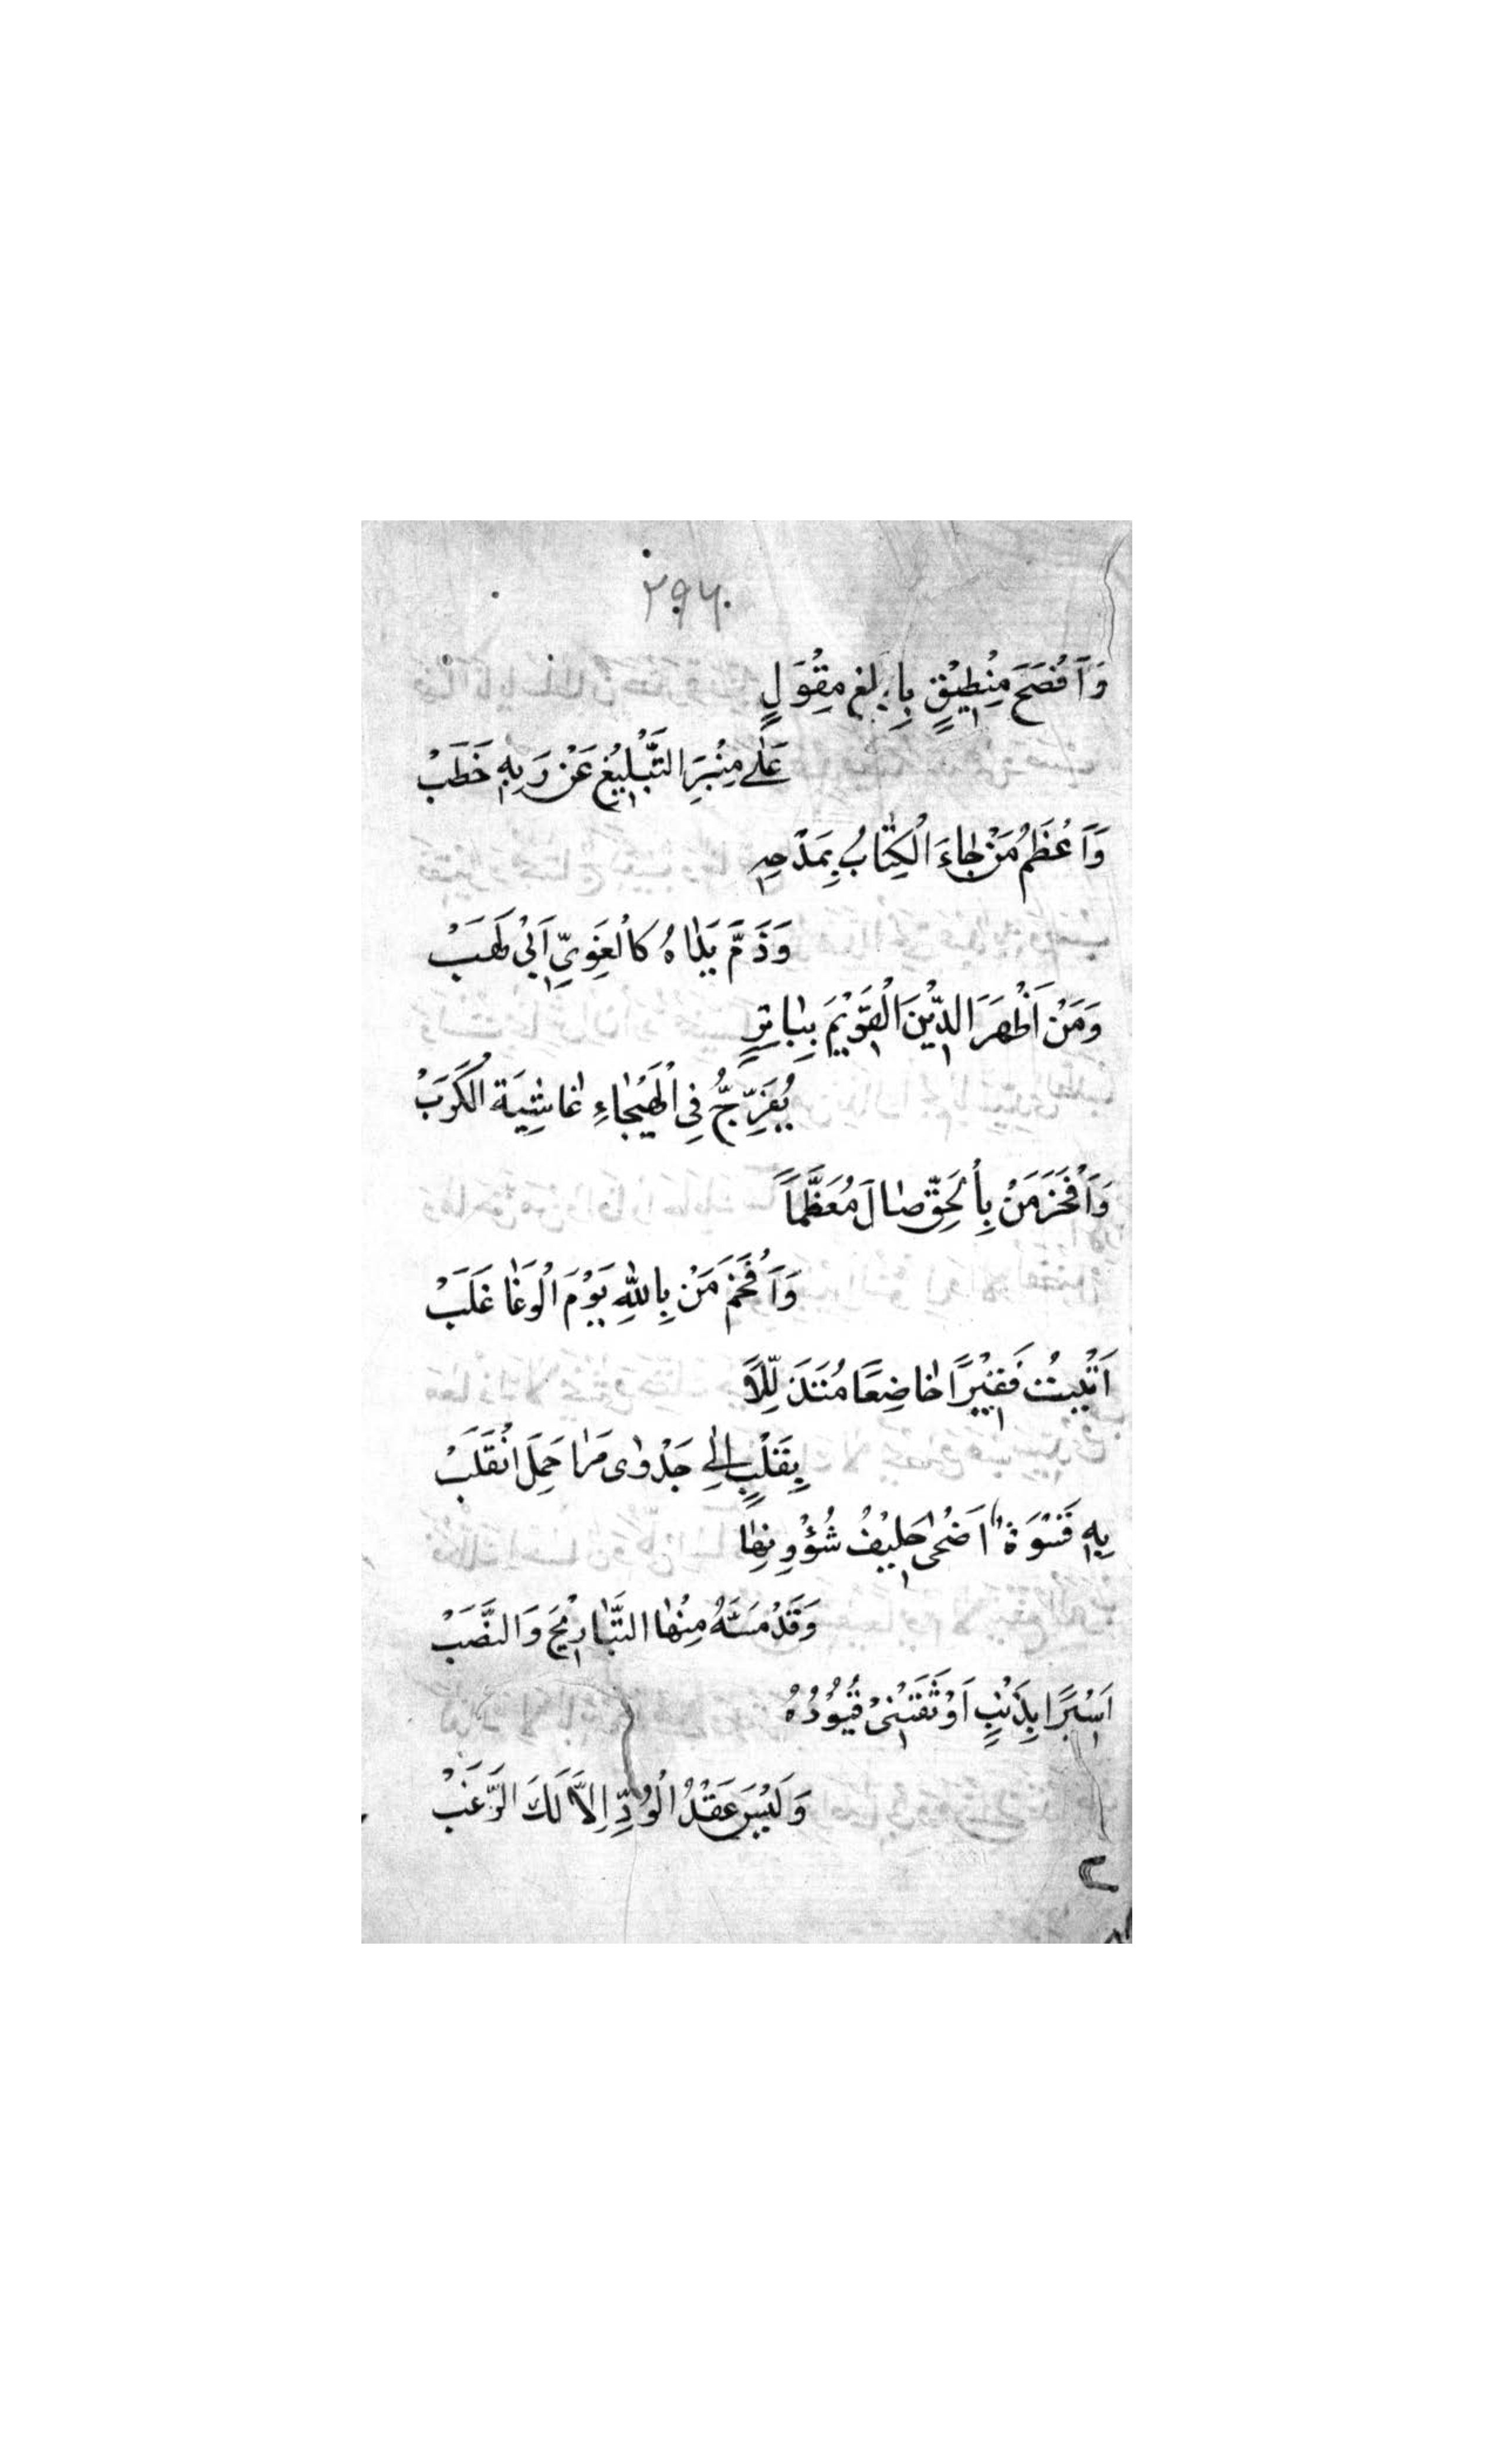 ۲۹۶
وَاَفْصَحَ مِنْطِيْقٍ بِاَبلغ مِقْوَلٍ
عَلٰى مِنْبَرِ التَّبْلِيْغِ عَنْ رَبِهِ خَطَبْ
وَاَعْظَمُ مَنْ جٰاءَ الْكِتٰابُ بِمَدْحِهِ
وَذَمَّ يَدٰاهُ كَالْغَوِيِّ اَبِىْ لَهَبْ
وَمَنْ اَظْهَرَ الدِّيْنَ الْقَوِيْمَ بِبٰاتِرٍ
يُفَرِّجُّ فِى الْهَيْجٰاءِ غٰاشِيَةَ الْكَرَبْ
وَاَفْخَرَ مَنْ بِالْحَقِّ صٰالَ مُعَظَّماً
وَاَفْخَمَ مَنْ بِاللهِ يَوْمَ الْوَغٰا غَلَبْ
اَتَيْتُ فَقِيْرًا خٰاضِعًا مُتَذَلِّلاً
بِقَلْبٍ اِلٰى جَدْوٰى مَرٰاحِمِكَ انْقَلَبْ
بِهِ قَسْوَةٌ اَضْحٰى حَلِيْفُ شُؤُوِنِهٰا
وَقَدْ مَسَّهُ مِنْهٰا التَّبٰارِيْحُ وَالنَّصَبْ
اَسْيرًا بِذَنْبٍ اَوْثَقَتْنِىْ قُيُوْدُهُ
وَلَيْسَ عَقْدُ الْوُدِّ اِلاَّ لَكَ الرَّغَبْ